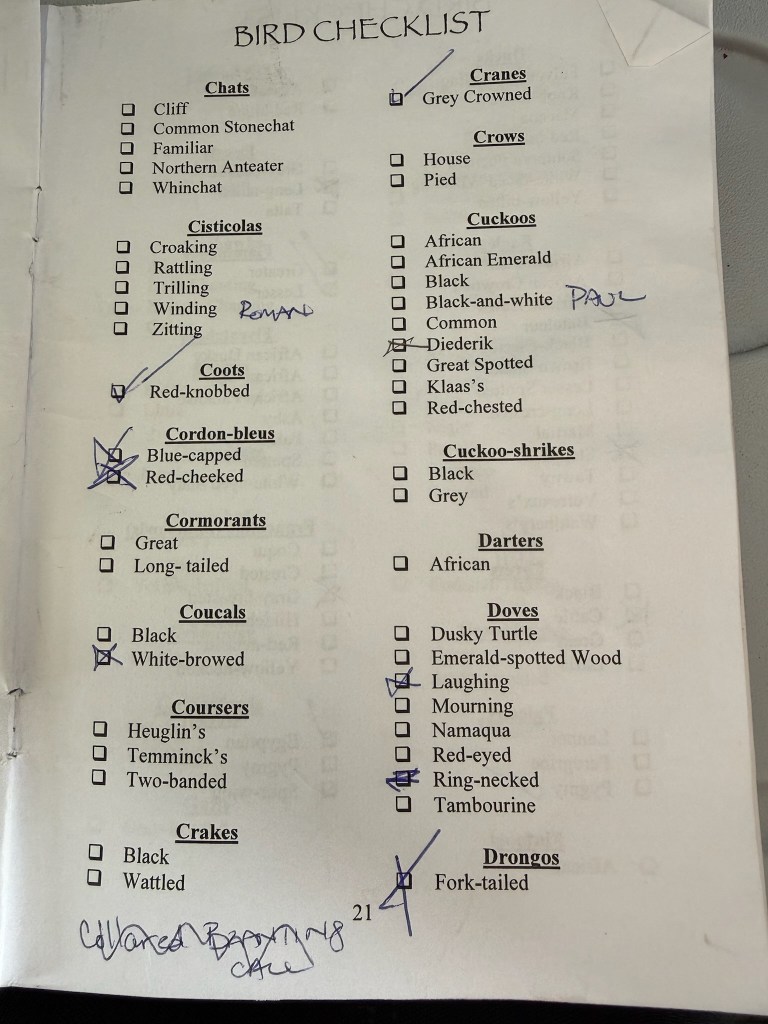 BIRD CHECKLIST
Chats
Cliff
Common Stonechat
Familiar
Northern Anteater
Whinchat
Cisticolas
Croaking
Rattling
Trilling
Winding ROMANO
Zitting
Coots
Red-knobbed
Cordon-bleus
Blue-capped
Red-cheeked
Cormorants
Great
Long- tailed
Coucals
Black
White-browed
Coursers
Heuglin's
Temminck's
Two-banded
Crakes
Black
Wattled
Cranes
Grey Crowned
Crows
House
Pied
Cuckoos
African
African Emerald
Black
Black-and-white PAUL
Common
Diederik
Great Spotted
Klaas's
Red-chested
Cuckoo-shrikes
Black
Grey
Darters
African
Doves
Dusky Turtle
Emerald-spotted Wood
Laughing
Mourning
Namaqua
Red-eyed
Ring-necked
Tambourine
Drongos
Fork-tailed
21
Collared
CALL